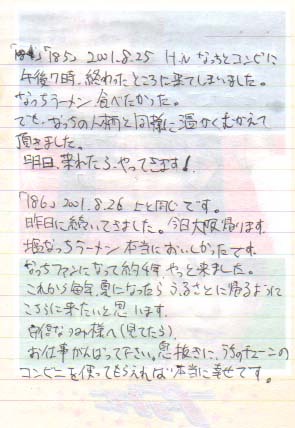 「185」 2001.8.25 H.ル なっちとコンビに
午後7時、終わったところに来てしまいました。
なっちラーメン食べたかった。
でも、なっちの人柄と同様に温かくむかえて
頂きました。
明日、来れたらやってきます!
「186」 2001.8.26 上と同じです。
昨日に続いてきました。今日大阪帰ります。
塩なっちラーメン本当においしかったです。
なっちファンになって約4年やっと来ました。
これから毎年、夏になったらふるさとに帰るように
こちらに来たいと思います。
安倍なつみ様へ(見てたら)
お仕事がんばって下さい。息抜きに、うちのチェーンの
コンビニを使ってもらえれば本当に幸せです。